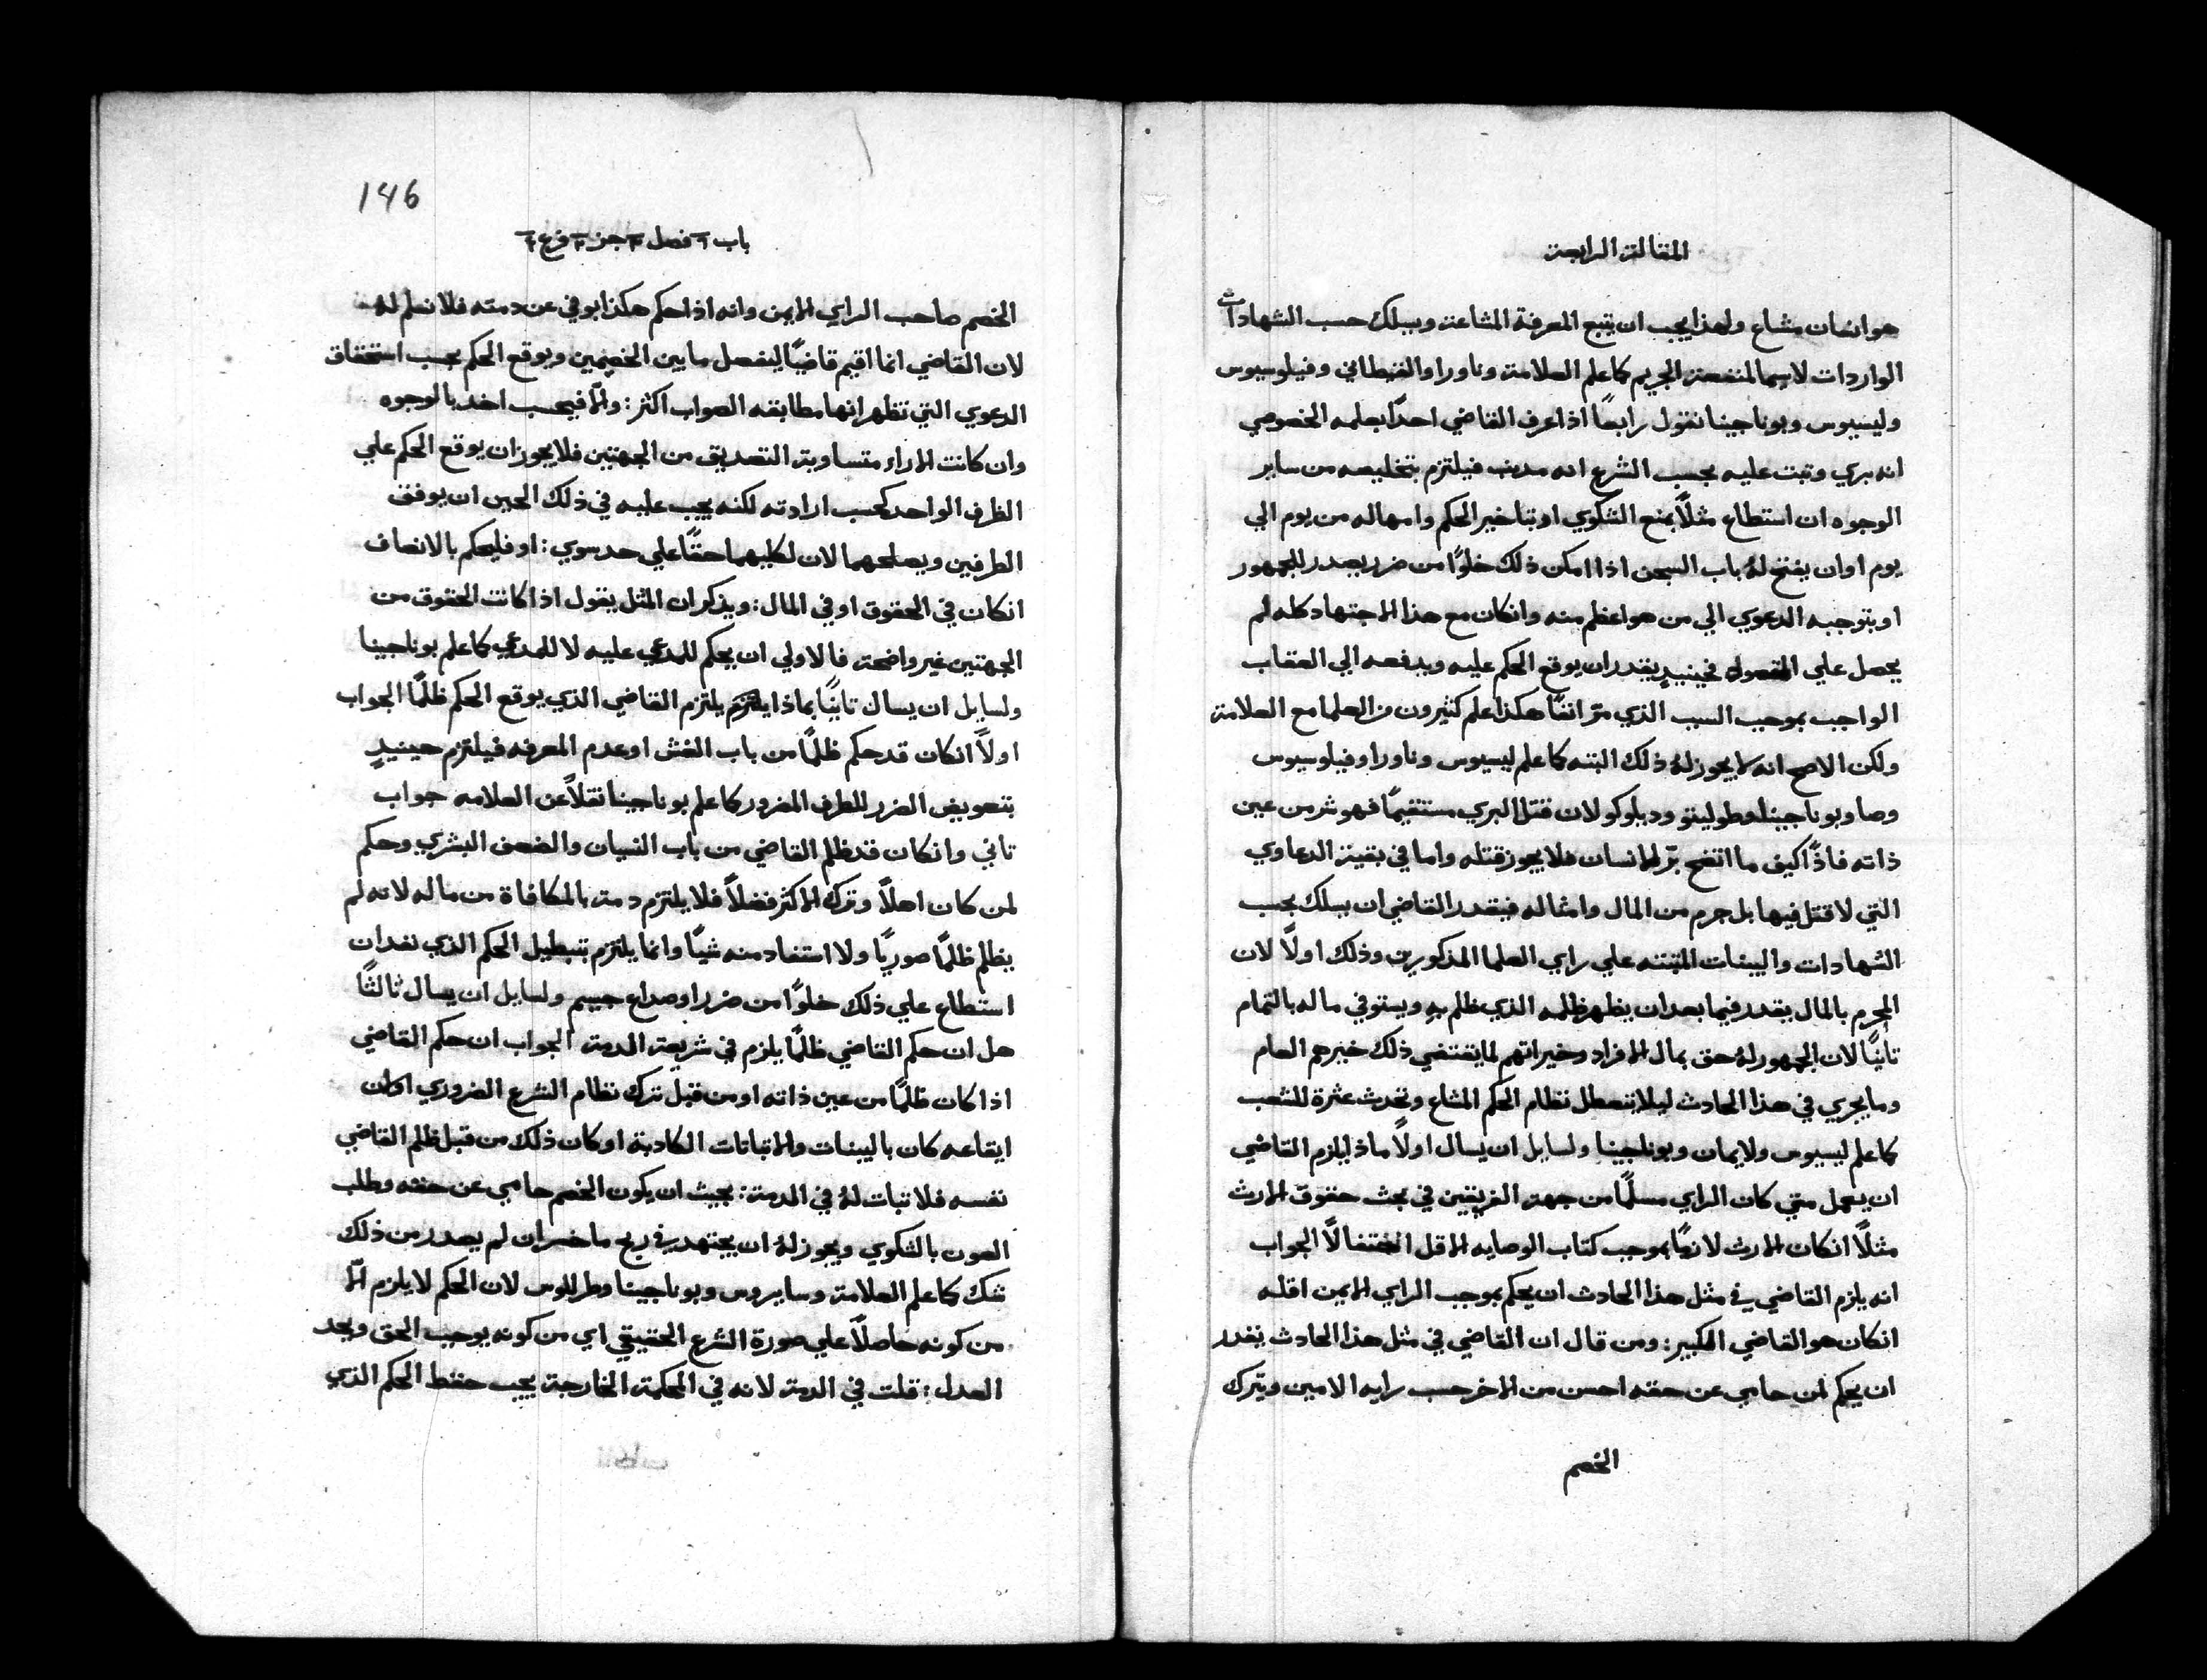 المقالة الرابعة
هو انسان مشاع ولهذا يجب ان يتبع المعرفة المشاعة ويسلك حسب الشهادات
الواردات لاسيما لمنفعة الجريم كما علم العلامة وناورا والقنطاني وفيلوسيوس
وليسيوس وبوناجينا نقول رابعًا اذا عرف القاضي احدًا بعلمه الخصوصي
انه بري وتبت عليه بحسب الشرع انه مدنب فيلتزم بتخليصه من ساير
الوجوه ان استطاع مثلاً بمنع الشكوي او بتاخير الحكم وامهاله من يوم الي
يوم او ان يفتح لهُ باب السجن اذا امكن ذلك خلوًا من ضرر يصدر للجمهور
او بتوجيه الدعوي الي من هو اعظم منه وانكان مع هذا الاجتهاد كله لم
يحصل علي المقصود فحينيدٍ يقدر ان يوقع الحكم عليه ويدفعه الي العقاب
الواجب بموجب السبب الذي مرّ انفًا هكذا علم كثيرون من العلما مع العلامة
ولكن الاصح انه لا يجوز لهُ ذلك البته كما علم ليسيوس وناورا وفيلوسيوس
وصا وبوناجينا وطوليتو وديلوكو لان قتل البري مستقيمًا فهو شر من عين
ذاته فاذًا كيف ما اتضح برّ الانسان فلا يجوز قتله واما في بقية الدعاوي
التي لا قتل فيها بل جرم من المال وامثاله فيقدر القاضي ان يسلك بحسب
الشهادات والبينات المتبته علي راي العلما المذكورين وذلك اولاً لان
المجرم بالمال يقدر فيما بعد ان يظهر ظلمه الذي ظلم بهِ ويستوفي ماله بالتمام
تانيًا لان الجمهور لهُ حق بمال الافراد وخيراتهم لما يقتضي ذلك خيرهم العام
وما يجري في هذا الحادث ليلا يتعطل نظام الحكم المشاع وتحدث عثرة للشعب
كما علم ليسيوس ولايمان وبوناجينا ولسايل ان يسال اولاً ماذا يلزم القاضي
ان يعمل متي كان الراي مسلمًا من جهة الفريقين في بحث حقوق الارث
مثلاً انكان الارث لازمًا بموجب كتاب الوصايه الاقل احتفالاً الجواب
انه يلزم القاضي في مثل هذا الحادث ان يحكم بموجب الراي الايمن اقله
انكان هو القاضي الكبير: ومن قال ان القاضي في مثل هذا الحادث يقدر
ان يحكم لمن حامي عن حقه احسن من الاخر حسب رايه الامين ويترك
الخصم
146
باب فصل جز فرع
الخصم صاحب الراي الايمن وانه اذا حكم هكذا يوفي عن دمته فلا نسلم لهُ
لان القاضي انما اقيم قاضيًا ليفصل ما بين الخصمين ويوقع الحكم بحسب استحقاق
الدعوي التي تظهر انها مطابقه الصواب اكثر: والّا فيحسب اخد بالوجوه
وان كانت الاراء متساوية التصديق من الجهتين فلا يجوز ان يوقع الحكم علي
الطرف الواحد كحسب ارادته لكنه يجب عليه في ذلك الحين ان يوفق
الطرفين ويصلحهما لان لكليهما حقًا علي حد سوي: او فليحكم بالانصاف
انكان في الحقوق او في المال: ويذكر ان المثل يقول اذا كانت الحقوق من
الجهتين غير واضحة فالاولي ان يحكم للمدعي عليه لا للمدعي كما علم بوناجينا
ولسايل ان يسال تانيًا بماذا يلتزم القاضي الذي يوقع الحكم ظلمًا الجواب
اولاً انكان قد حكم ظلمًا من باب الغش او عدم المعرفه فيلتزم حينيدٍ
بتعويض الضرر للطرف المضرور كما علم بوناجينا نقلاً عن العلامه جواب
تاني وانكان قد ظلم القاضي من باب النسيان والضعف البشري وحكم
لمن كان اهلاً وترك الاكثر فضلاً فلا يلتزم دمة بالمكافاة من ماله لانه لم
يظلم ظلمًا صوريًا ولا استفاد منه شيًا وانما يلتزم بتبطيل الحكم الذي نفد ان
استطاع علي ذلك خلوًا من ضرر او صداع جسيم ولسايل ان يسال ثالثًا
هل ان حكم القاضي ظلمًا يلزم في شريعة الدمة الجواب ان حكم القاضي
اذا كان ظلمًا من عين ذاته او من قبل ترك نظام الشرع الضروري اوان
ايقاعه كان بالبينات والاتباتات الكادبة او كان ذلك من قبل ظلم القاضي
نفسه فلا تبات لهُ في الدمة: بحيث ان يكون الخصم حامي عن حقه وطلب
العون بالشكوي ويجوز لهُ ان يجتهد في ربح ما خسر ان لم يصدر من ذلك
شك كما علم العلامة وسايروس وبوناجينا وطرللوس لان الحكم لا يلزم الّا
من كونه حاصلاً علي صورة الشرع الحقيقي اي من كونه يوجب الحق ويحد
العدل: قلت في الدمة لانه في المحكمة الخارجة يجب حفظ الحكم الذي